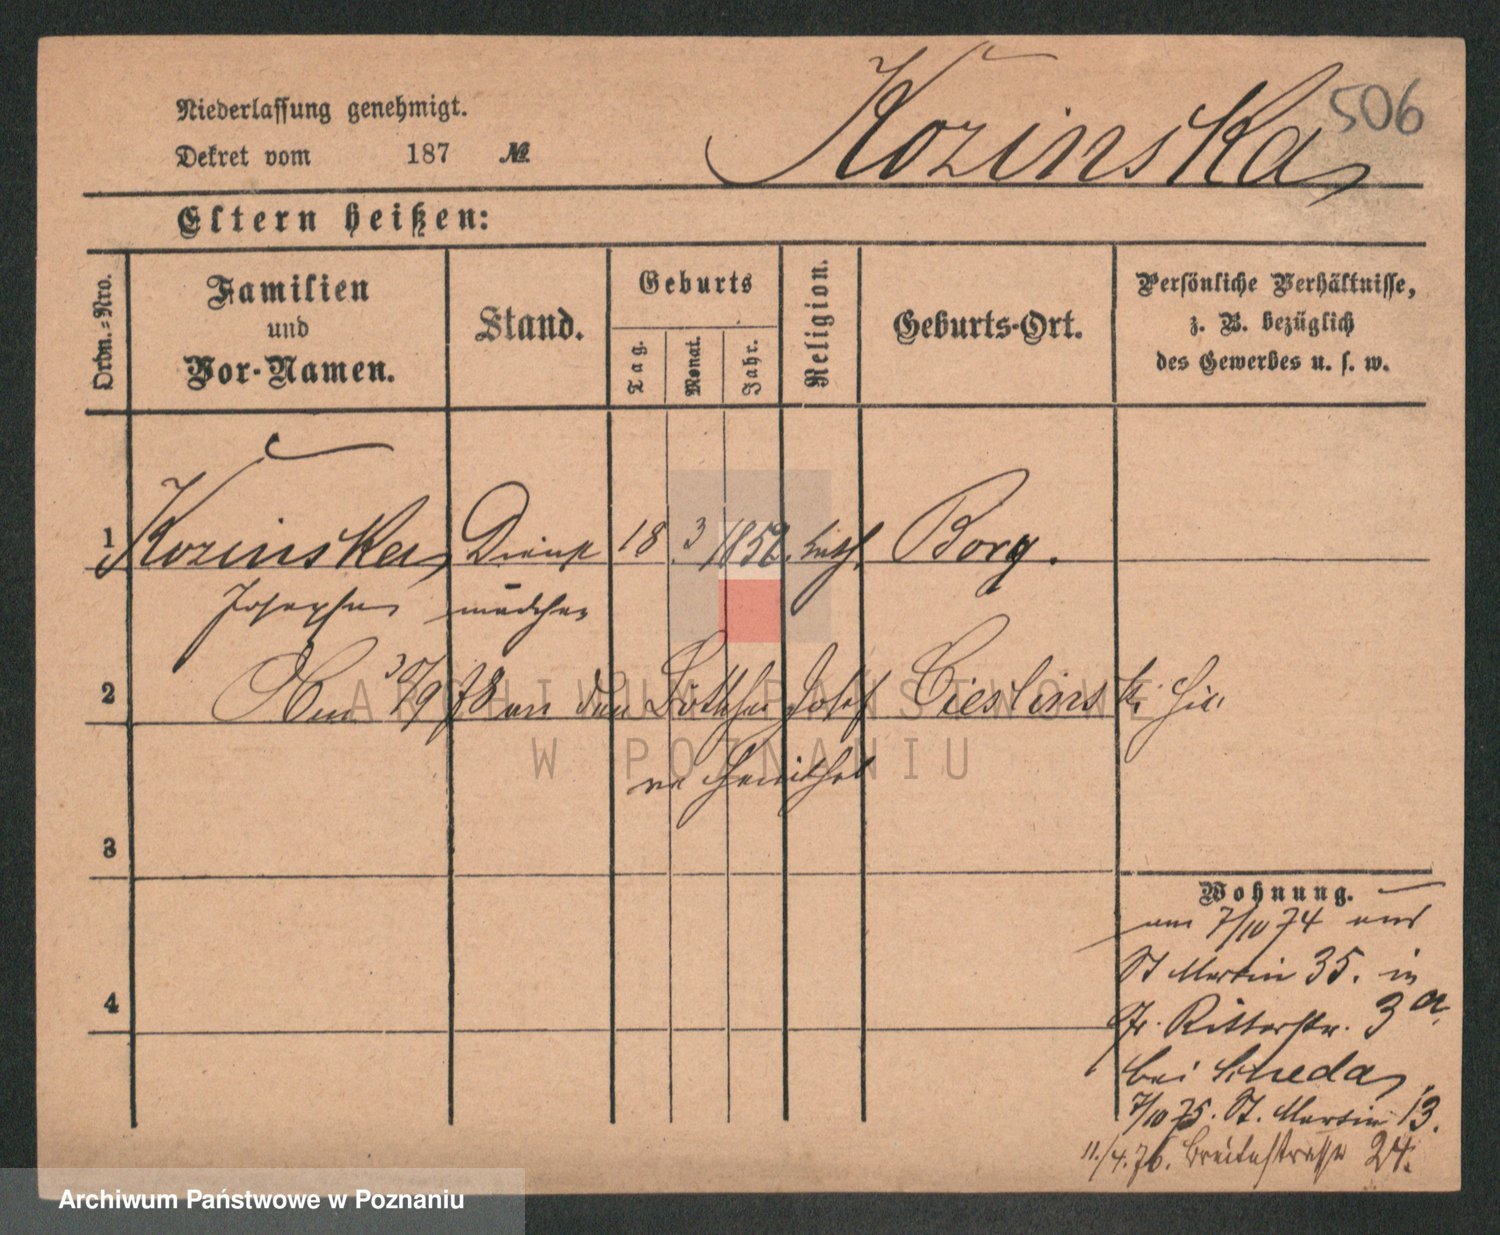 Niederlassung genehmigt.
Dekret vom 187 №
Kozinska
506
Eltern heißen:
Ordn.=Nro.
Familien
und
Vor-Namen.
Stand.
Geburts
Tag.
Monat.
Jahr.
Religion.
Geburts-Ort.
Persönliche Verhältnisse,
z. B. bezüglich
des Gewerbes u. s. w.
1 Kozinska Dienst 18 3 1852 kath Borg.
Josepha mädchen
2 Am 30/9 78 an den Böttcher Josef Cieslinski hie
re
3
4
Wohnung.
am 7/10 74 aus
St Martin 35. in
Gr. Ritterstr. 3 a.
bei
7/10 75. St. Martin 13.
11./4. 76. Breitestrasse 24.
ARCHIWUM PAŃSTWOWE
W POZNANIU
Archiwum Państwowe w Poznaniu